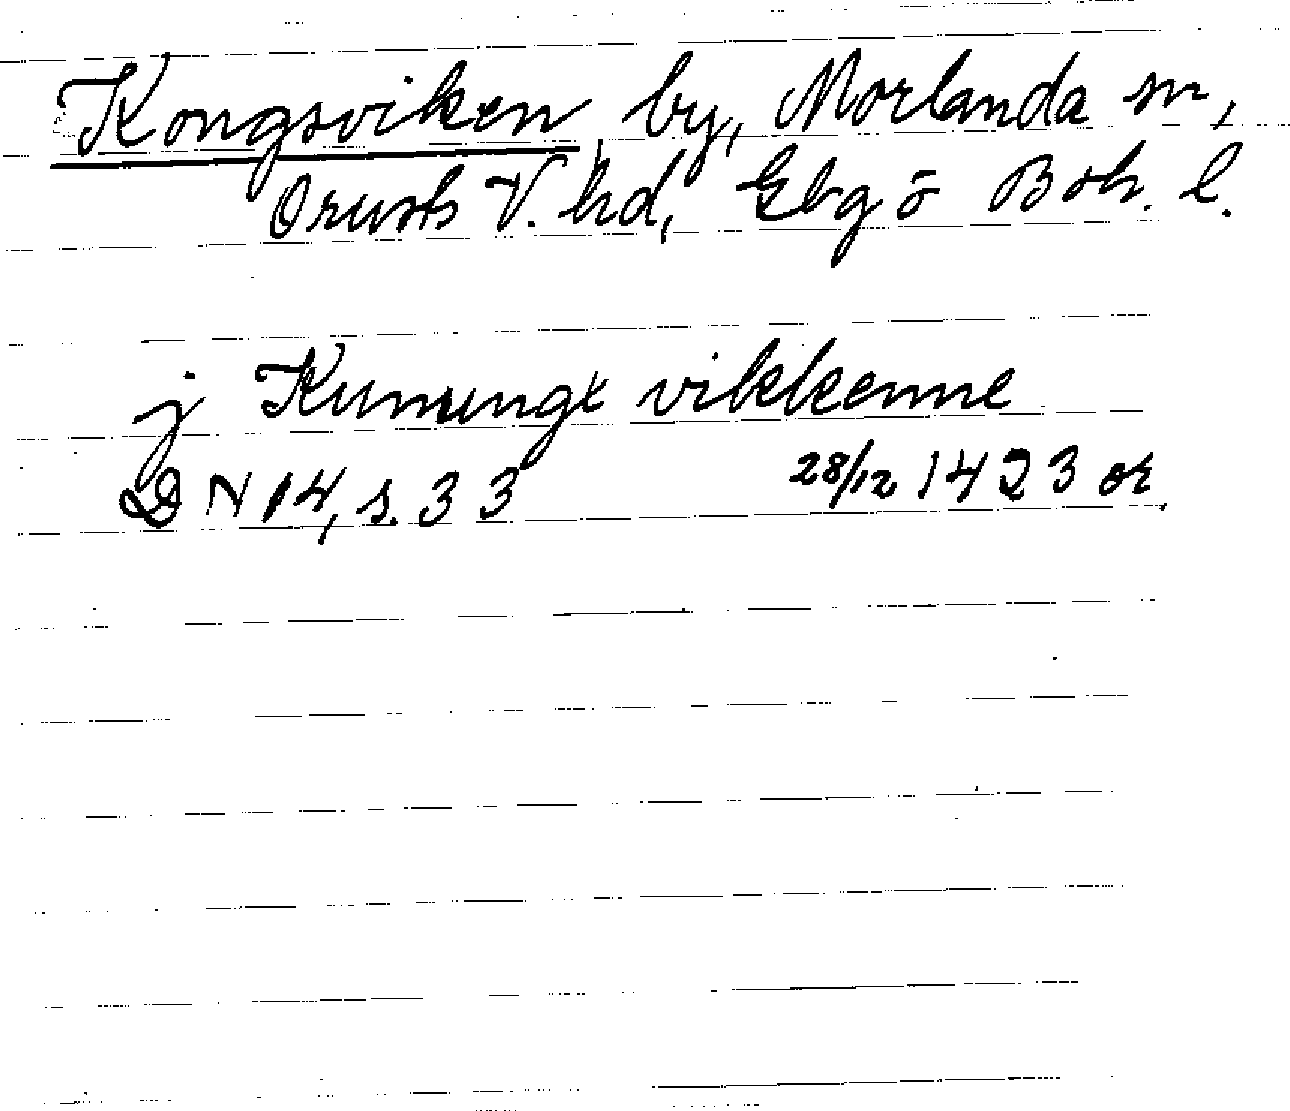 Kongsviken by, Morlanda sn,
Orusts V. hd, Gbg o Boh. l.
j Kunungx vikkenne
DN 14, s. 33 28/12 1423 or.